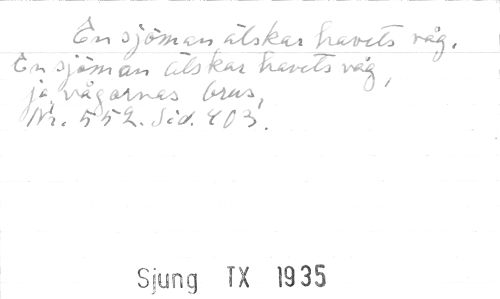 En sjöman älskar havets våg.
En sjöman älskar havets våg,
ja, vågornas brus,
Nr. 552. Sid. 403.
Sjung TX 1935